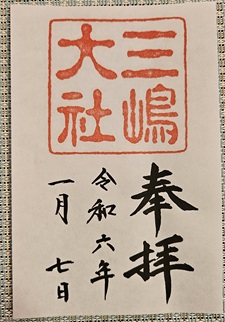 三嶋
大社
奉拝
令和六年
一月 七日